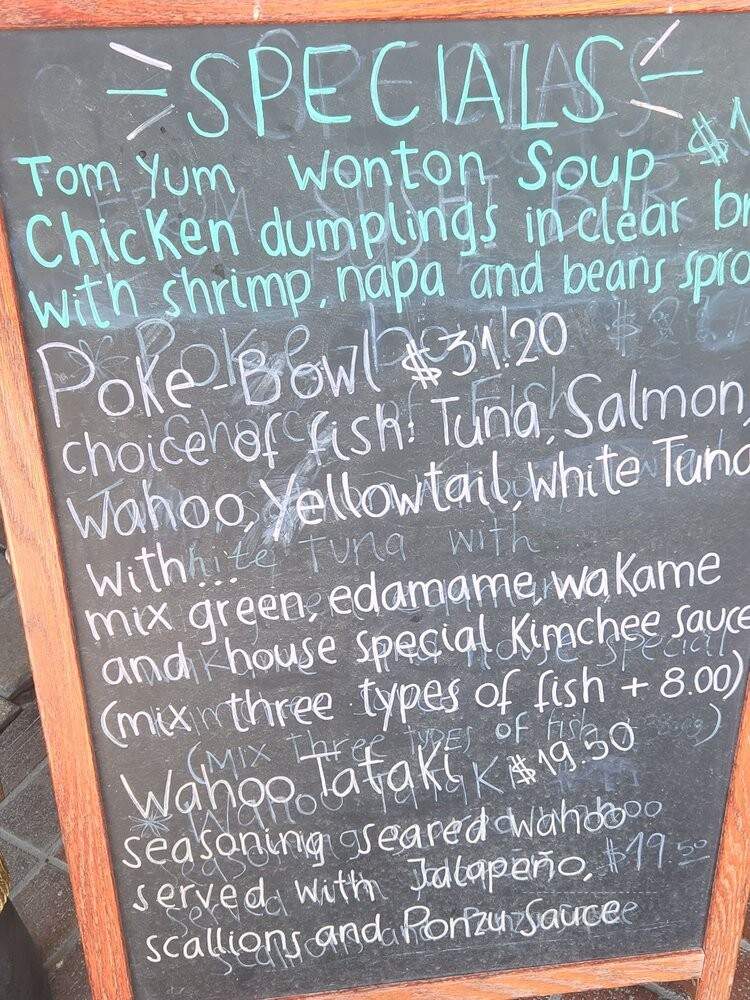 SPECIALS
Tom Yum Wonton Soup
Chicken dumplings in clear
with shrimp, napa and beans
Poke-Bowl $31.20
choice of fish: Tuna, Salmon,
Wahoo, Yellowtail, white Tuna
with...
mix green, edamame, wakame
and house special Kimchee sauce
(mix three types of fish + 8.00)
Wahoo Tataki $19.50
seasoning seared wahoo
served with Jalapeño,
scallions and Ponzu Sauce